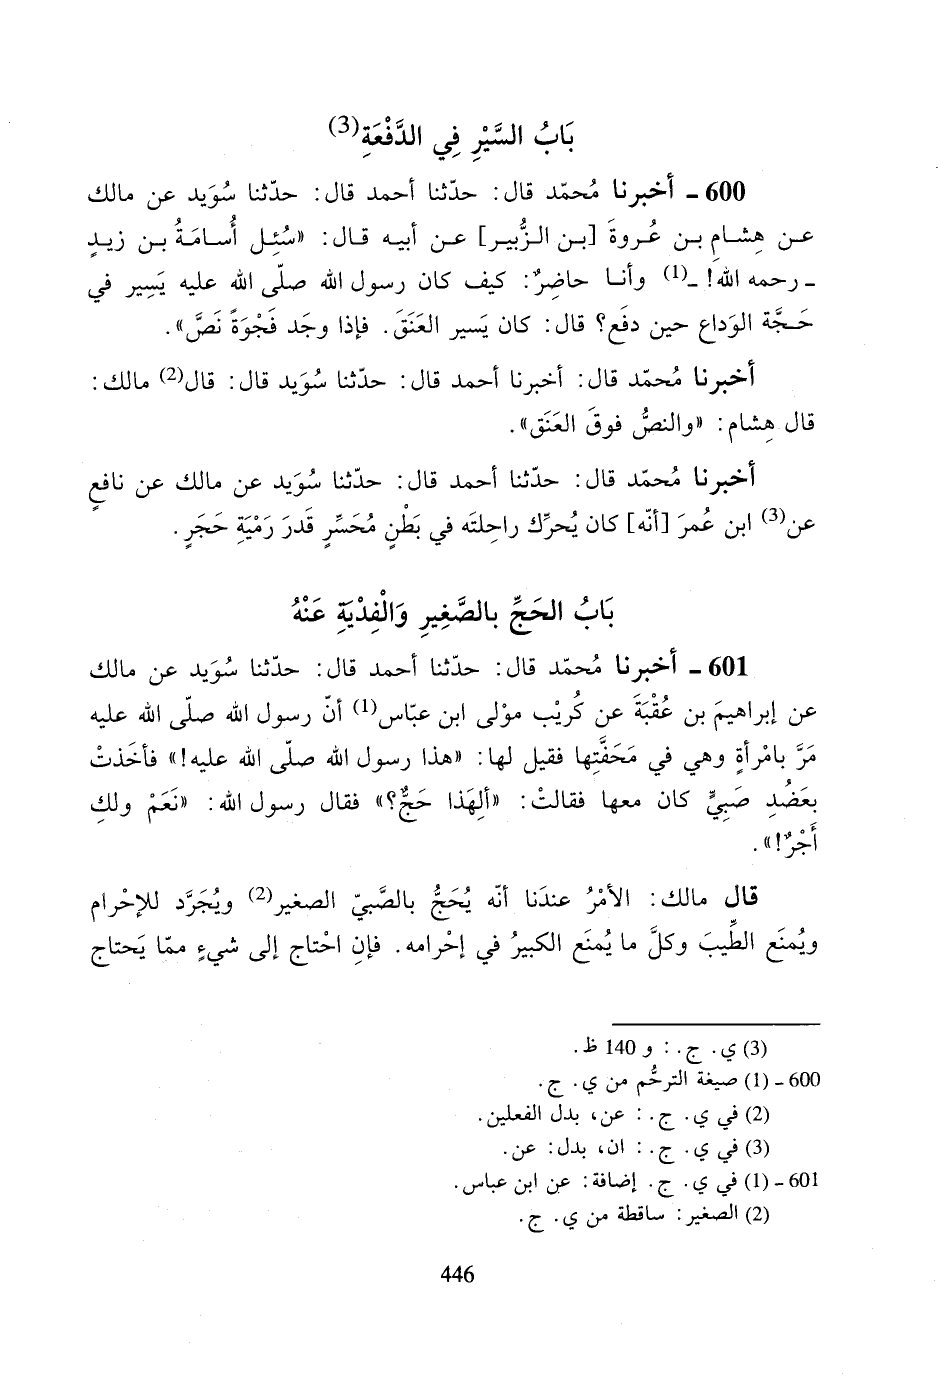 بَابُ السَّيْرِ فِي الدَّفْعَةِ(3)
600 ـ أخبرنا مُحمّد قال: حدّثنا أحمد قال: حدّثنا سُوَيد عن مالك
عن هِشام بن عُروةَ [بن الزُّبير] عن أبيه قال: «سُئِل أُسامَةُ بن زيدٍ
ـ رحمه الله! ـ(1) وأنا حاضِرٌ: كيف كان رسول الله صلّى الله عليه يَسِير في
حَجَّة الوَداع حين دفَع؟ قال: كان يَسير العَنَقَ. فإذا وجَد فَجْوَةً نَصَّ».
أخبرنا مُحمّد قال: أخبرنا أحمد قال: حدّثنا سُوَيد قال: قال(2) مالك:
قال هِشام: «والنصُّ فوقَ العَنَق».
أخبرنا مُحمّد قال: حدّثنا أحمد قال: حدّثنا سُوَيد عن مالك عن نافعٍ
عن(3) ابن عُمرَ [أنّه] كان يُحرِّك راحِلتَه في بَطْنِ مُحَسِّرٍ قَدرَ رَمْيَةِ حَجَرٍ.
بَابُ الحَجِّ بالصَّغِيرِ وَالْفِدْيَةِ عَنْهُ
601 ـ أخبرنا مُحمّد قال: حدّثنا أحمد قال: حدّثنا سُوَيد عن مالك
عن إبراهيمَ بن عُقْبَةَ عن كُرَيْب موْلى ابن عبّاس(1) أنّ رسول الله صلّى الله عليه
مَرَّ بامْرأةٍ وهي في مَحَفَّتِها فقيل لها: «هذا رسول الله صلّى الله عليه!» فأخَذتْ
بعَضُدِ صَبِيٍّ كان معها فقالتْ: «ألِهَذا حَجٌّ؟» فقال رسول الله: «نَعَمْ ولكِ
أجْرٌ!».
قال مالك: الأمْرُ عندَنا أنّه يُحَجُّ بالصَّبيّ الصغير(2) ويُجَرَّد للإحْرام
ويُمنَع الطِّيبَ وكلَّ ما يُمنَع الكبيرُ في إحْرامه. فإنِ احْتاج إلى شيءٍ ممّا يَحتاج
(3) ي. ج. : و 140 ظ.
600 ـ (1) صيغة الترحُّم من ي. ج.
(2) في ي. ج. : عن، بدل الفعلين.
(3) في ي. ج. : ان، بدل: عن.
601 ـ (1) في ي. ج. إضافة: عن ابن عباس.
(2) الصغير: ساقطة من ي. ج.
446